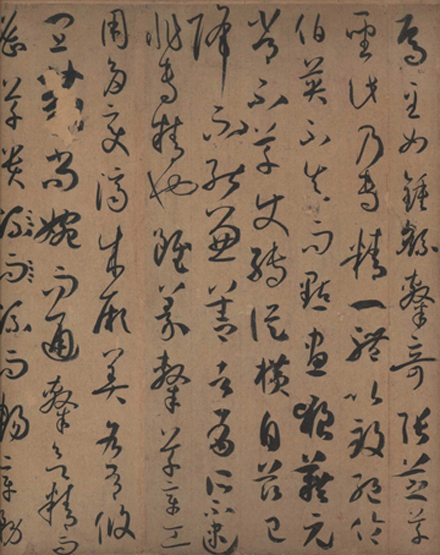 焉至如鍾繇隸奇張芝草
聖此乃專精一體以致絕倫
伯英不真而點畫狼藉元
常不草使轉縱橫自茲已
降不能兼善者有所不逮
非專精也雖篆隸草章工
用多變濟成厥美各有攸
宜篆尚婉而通隸欲精而
密草貴流而流而暢章務